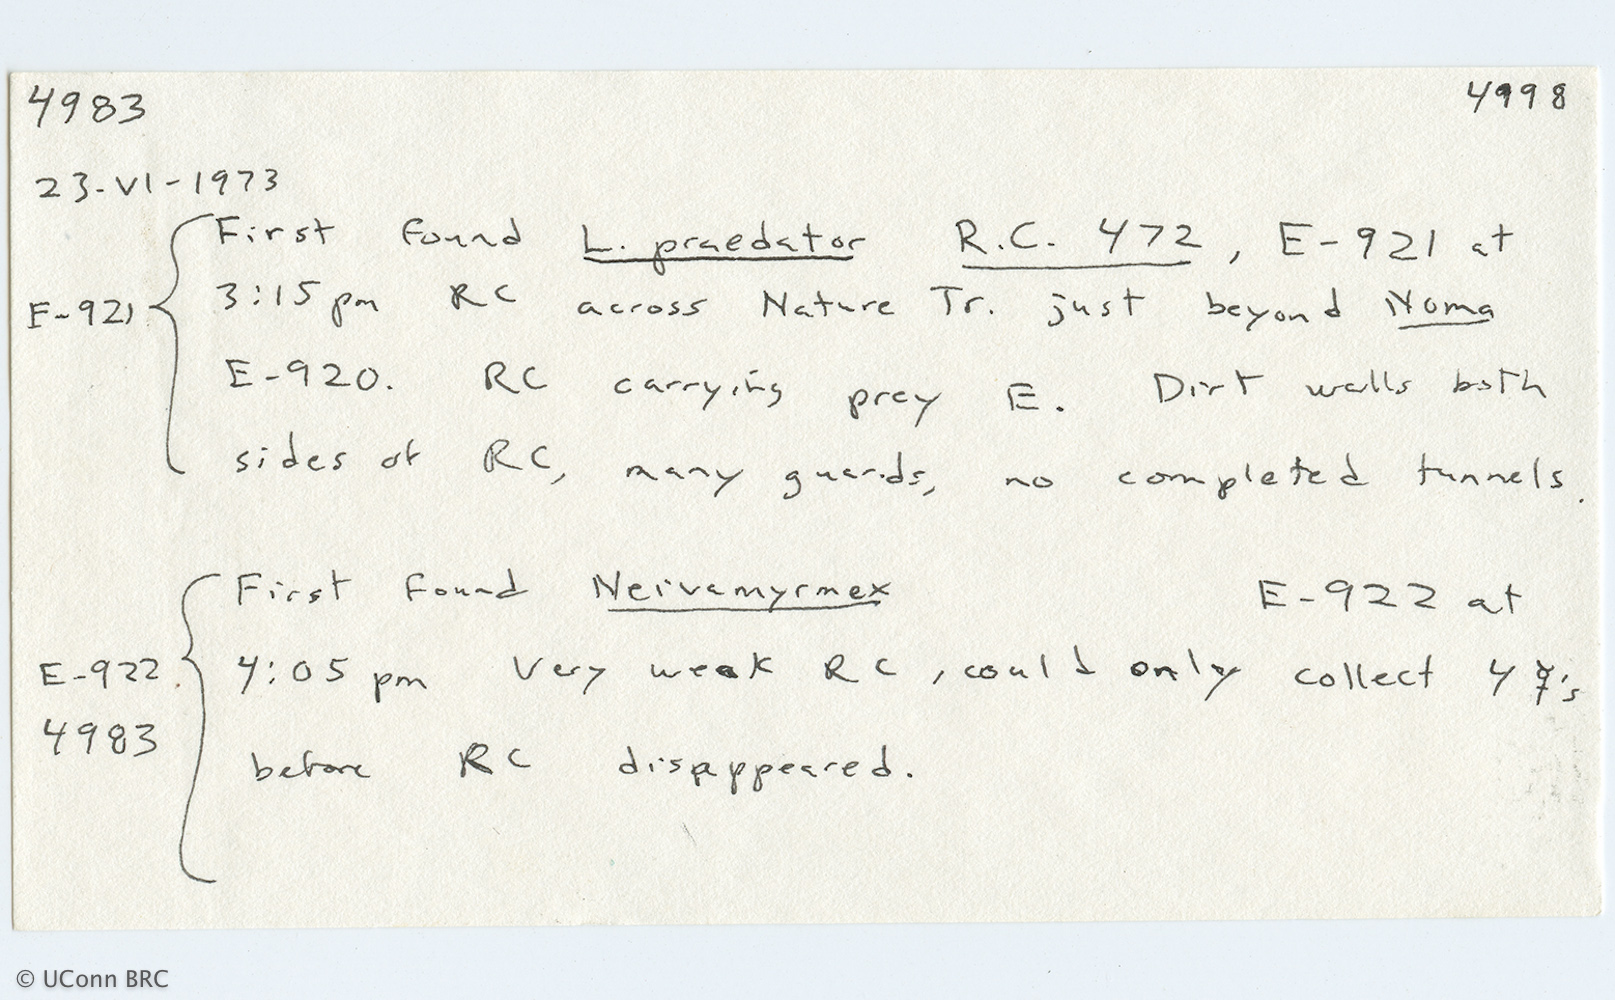 4983 4998
23-VI-1973
First found L. praedator R.C. 472, E-921 at
E-921 3:15 pm RC across Nature Tr. just beyond Noma
E-920. RC carrying prey E. Dirt walls both
sides of RC, many guards, no completed tunnels.
First found Neivamyrmex E-922 at
E-922 4:05 pm Very weak RC, could only collect 4 ☿'s
4983
before RC disappeared.
© UConn BRC